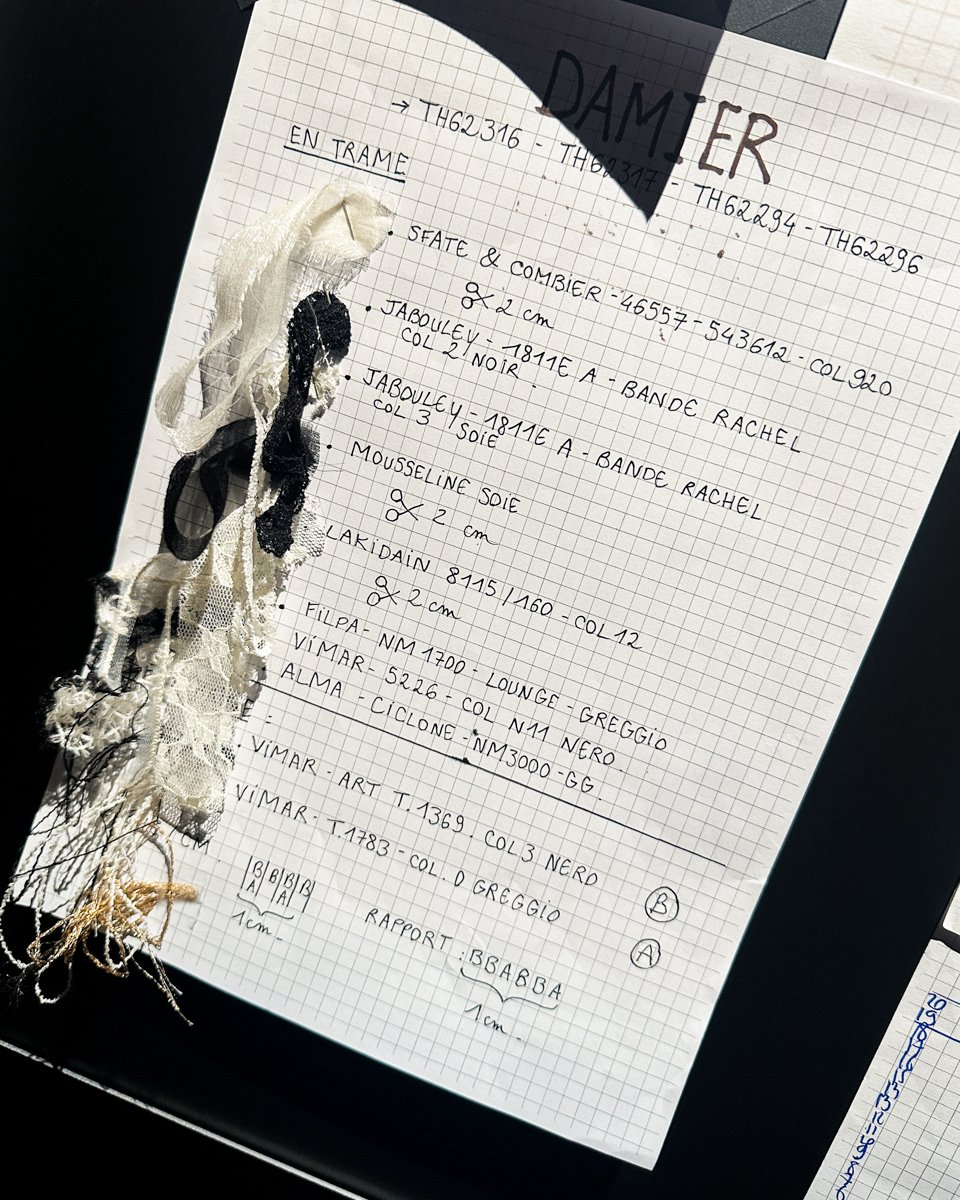 DAMIER
→ TH62316 - TH62317 - TH62294 - TH62296
EN TRAME
• SFATE & COMBIER - 46557 - 543612 - COL 920
2 cm
• JABOULEY - 1811E A - BANDE RACHEL
COL 2 NOIR -
• JABOULEY - 1811E A - BANDE RACHEL
COL 3 SOIE
• MOUSSELINE SOIE
2 cm
LAKIDAIN 8115/160 - COL 12
2 cm
• FILPA - NM 1700 - LOUNGE - GREGGIO
VIMAR - 5226 - COL N11 NERO.
ALMA - CICLONE - NM3000 - GG.
• VIMAR - ART T.1369. COL 3 NERO
B
VIMAR - T.1783 - COL. D GREGGIO
A
CM.
B B B B
A A
1 cm -
RAPPORT : BBABBA
1 cm.